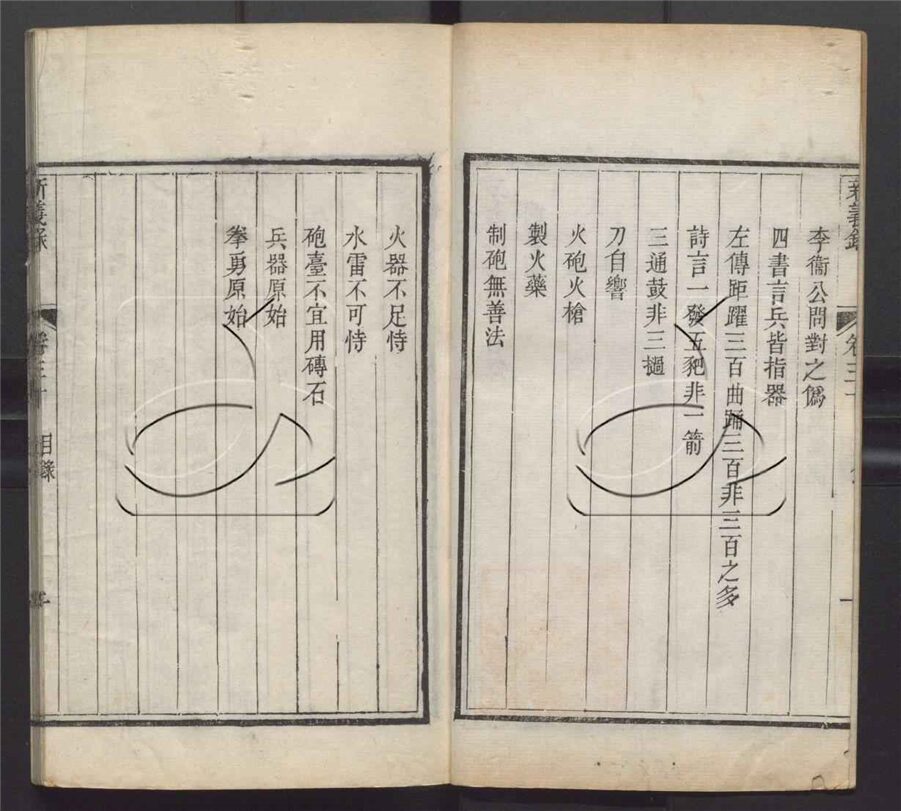 李衞公問對之僞
四書言兵皆指器
左傳距躍三百曲踊三百非三百之多
詩言一發五豝非一箭
三通鼓非三撾
刀自響
火砲火槍
製火藥
制砲無善法
火器不足恃
水雷不可恃
砲臺不宜用磚石
兵器原始
拳勇原始
新義錄
卷三十
目錄